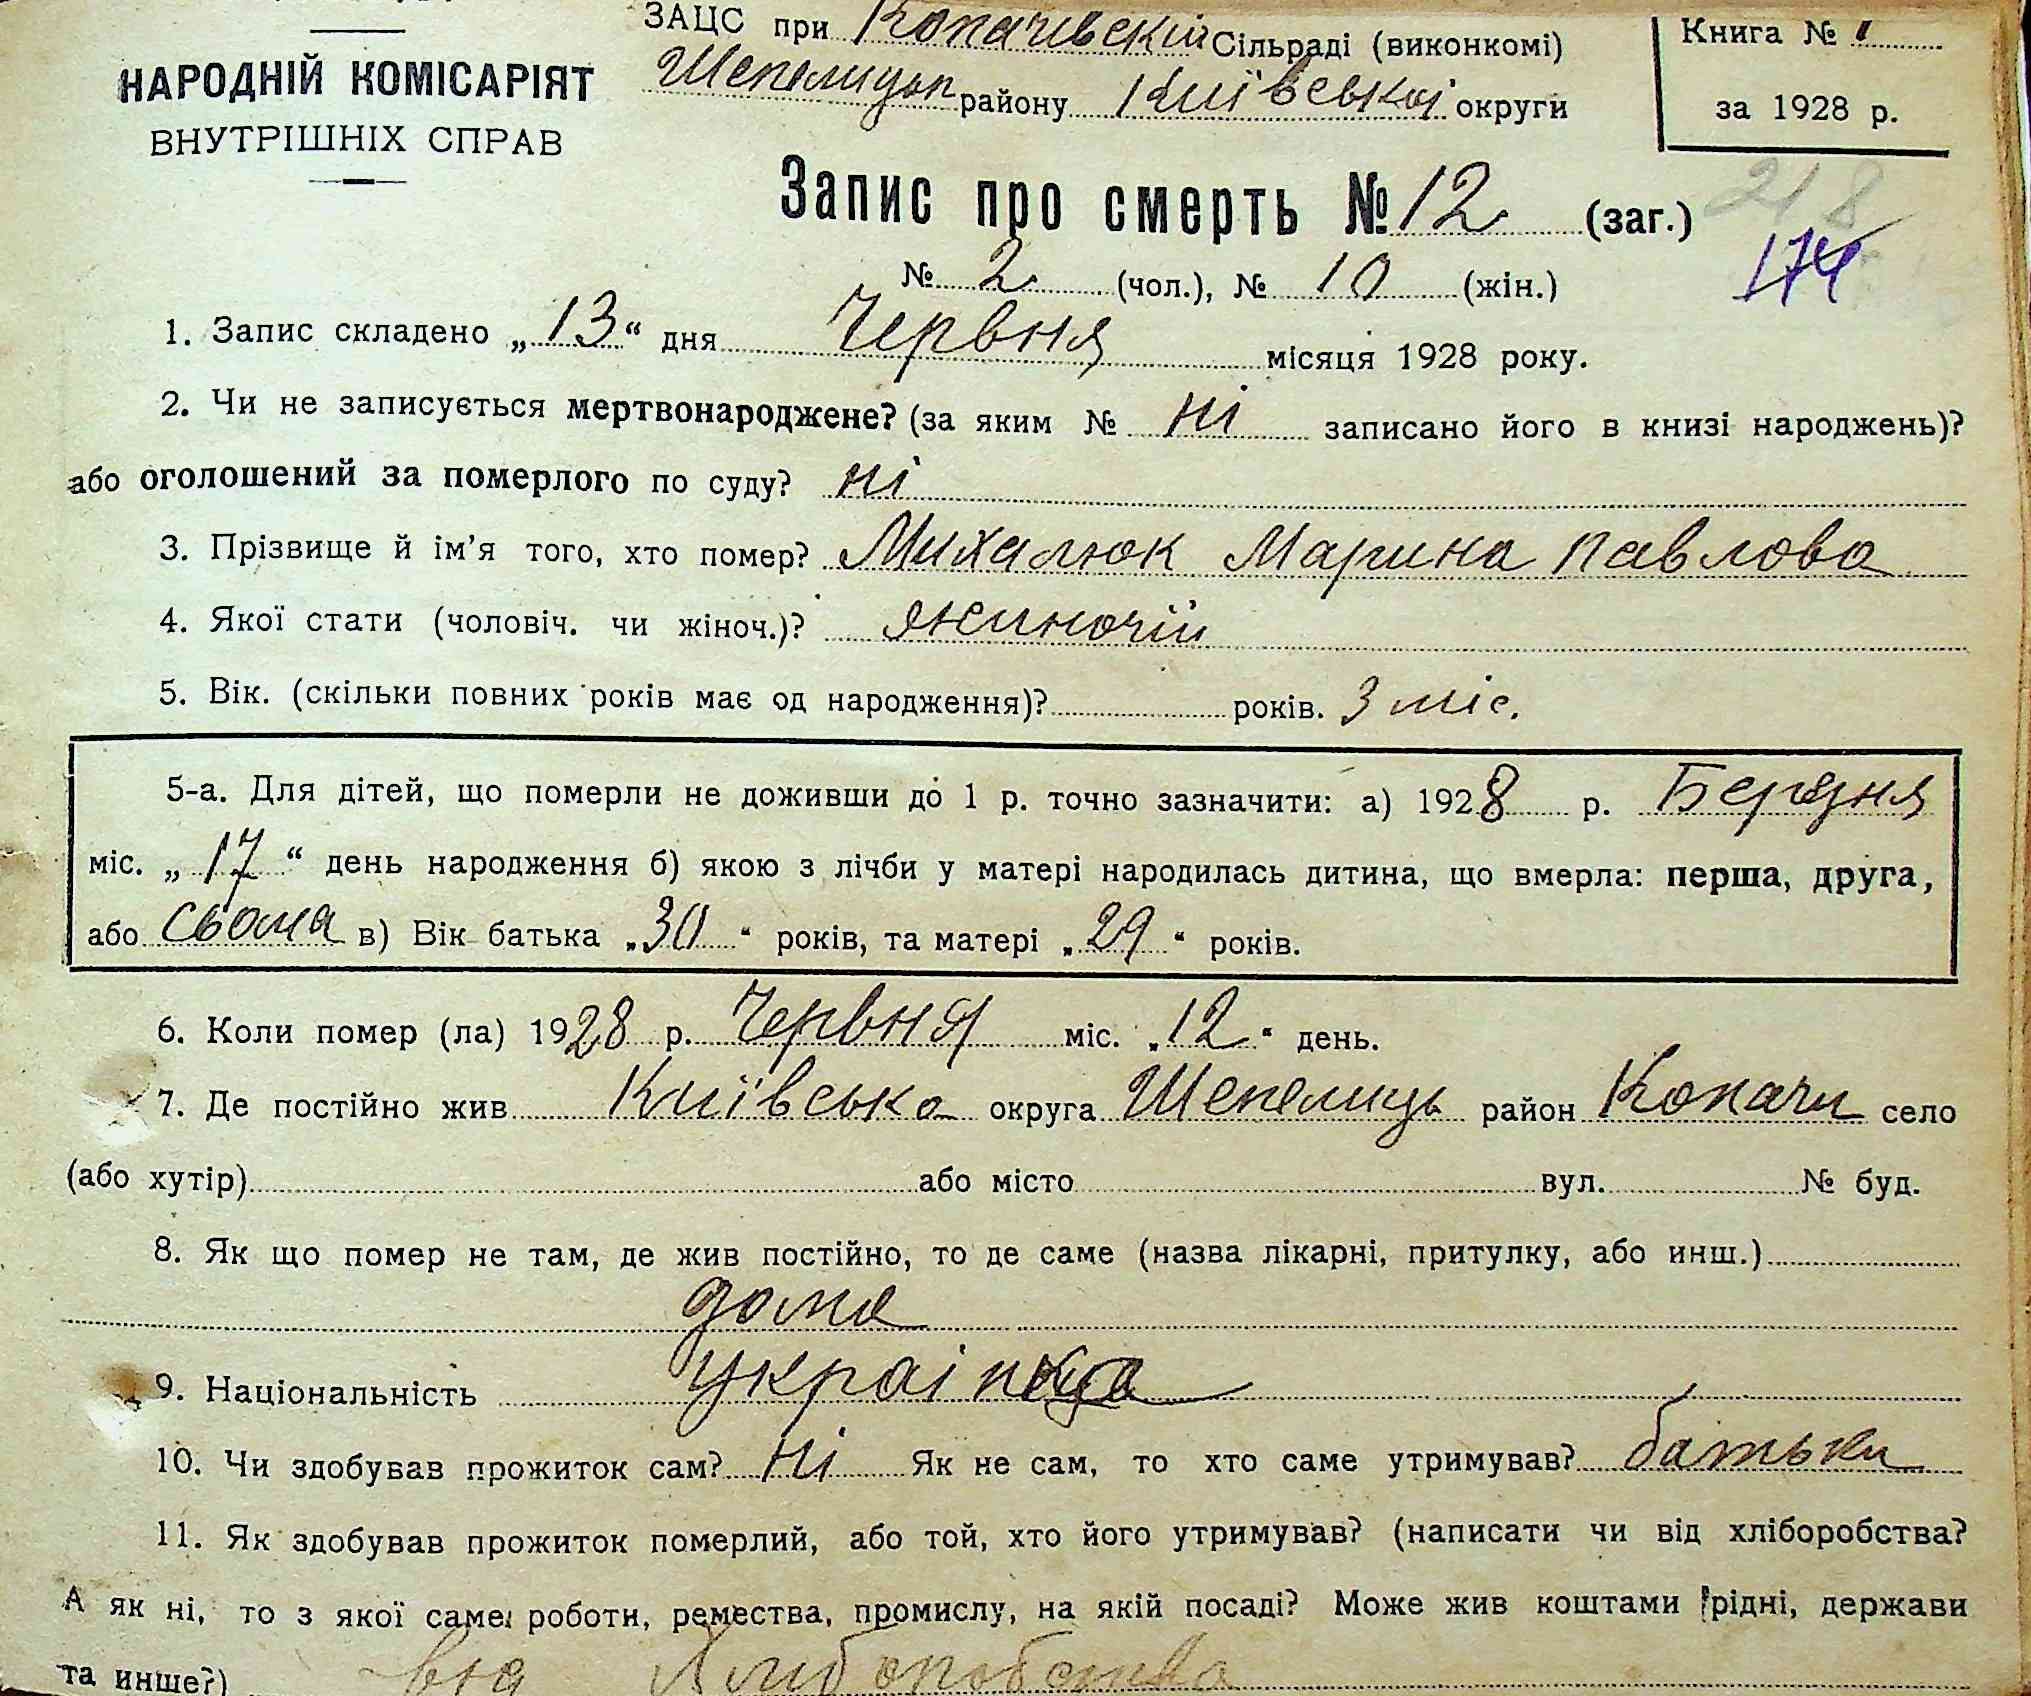 ЗАЦС при Копачівській Сільраді (виконкомі)
Книга № 1
НАРОДНІЙ КОМІСАРІЯТ
Шепелицьк району Київської округи
за 1928 р.
ВНУТРІШНІХ СПРАВ
Запис про смерть № 12 (заг.)
218
174
№ 2 (чол.), № 10 (жін.)
1. Запис складено „13“ дня Червня місяця 1928 року.
2. Чи не записується мертвонароджене? (за яким № ні записано його в книзі народжень)?
або оголошений за померлого по суду? ні
3. Прізвище й ім’я того, хто помер? Михалюк Марина Павлова
4. Якої стати (чоловіч. чи жіноч.)? жиночій
5. Вік. (скільки повних років має од народження)? років. 3 міс.
5-а. Для дітей, що померли не доживши до 1 р. точно зазначити: а) 1928 р. Березня
міс. „17“ день народження б) якою з лічби у матері народилась дитина, що вмерла: перша, друга,
або сьома в) Вік батька „30“ років, та матері „29“ років.
6. Коли помер (ла) 1928 р. Червня міс. „12“ день.
7. Де постійно жив Київська округа Шепелиць район Копачи село
(або хутір) або місто вул. № буд.
8. Як що помер не там, де жив постійно, то де саме (назва лікарні, притулку, або инш.)
дома
9. Національність
10. Чи здобував прожиток сам? ні Як не сам, то хто саме утримував? батьки
11. Як здобував прожиток померлий, або той, хто його утримував? (написати чи від хліборобства?
А як ні, то з якої саме роботи, ремества, промислу, на якій посаді? Може жив коштами рідні, держави
та инше?) від Хліборобства